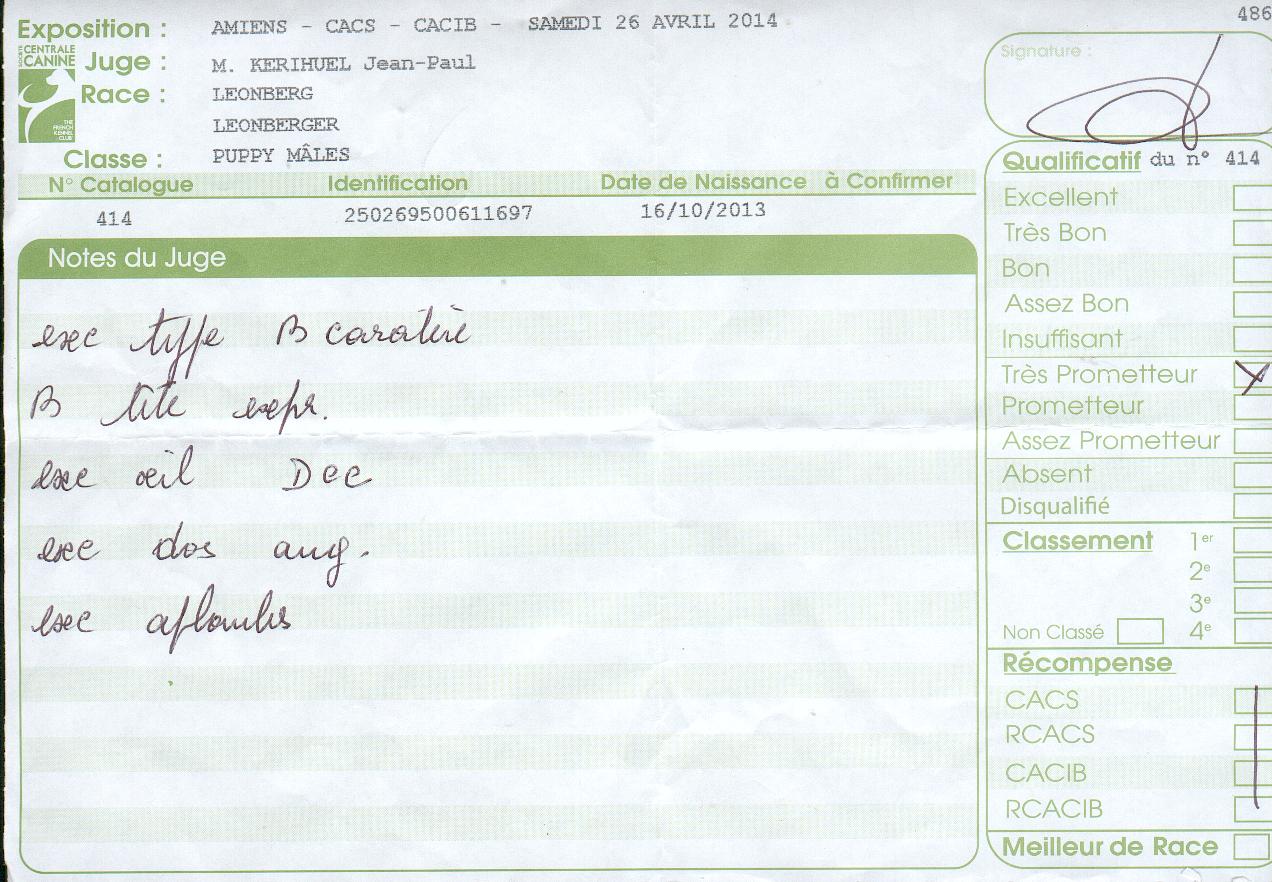 Exposition : AMIENS - CACS - CACIB - SAMEDI 26 AVRIL 2014
486
SOCIÉTÉ CENTRALE CANINE
Juge : M. KERIHUEL Jean-Paul
Race : LEONBERG
LEONBERGER
THE FRENCH KENNEL CLUB
Classe : PUPPY MÂLES
Signature :
N° Catalogue Identification Date de Naissance à Confirmer
414 250269500611697 16/10/2013
Notes du Juge
exc type B caratère
B tête expr.
exc œil Dec
exc dos ang.
exc aplombs
Qualificatif du n° 414
Excellent
Très Bon
Bon
Assez Bon
Insuffisant
Très Prometteur X
Prometteur
Assez Prometteur
Absent
Disqualifié
Classement 1er
2e
3e
Non Classé 4e
Récompense
CACS
RCACS
CACIB
RCACIB
Meilleur de Race